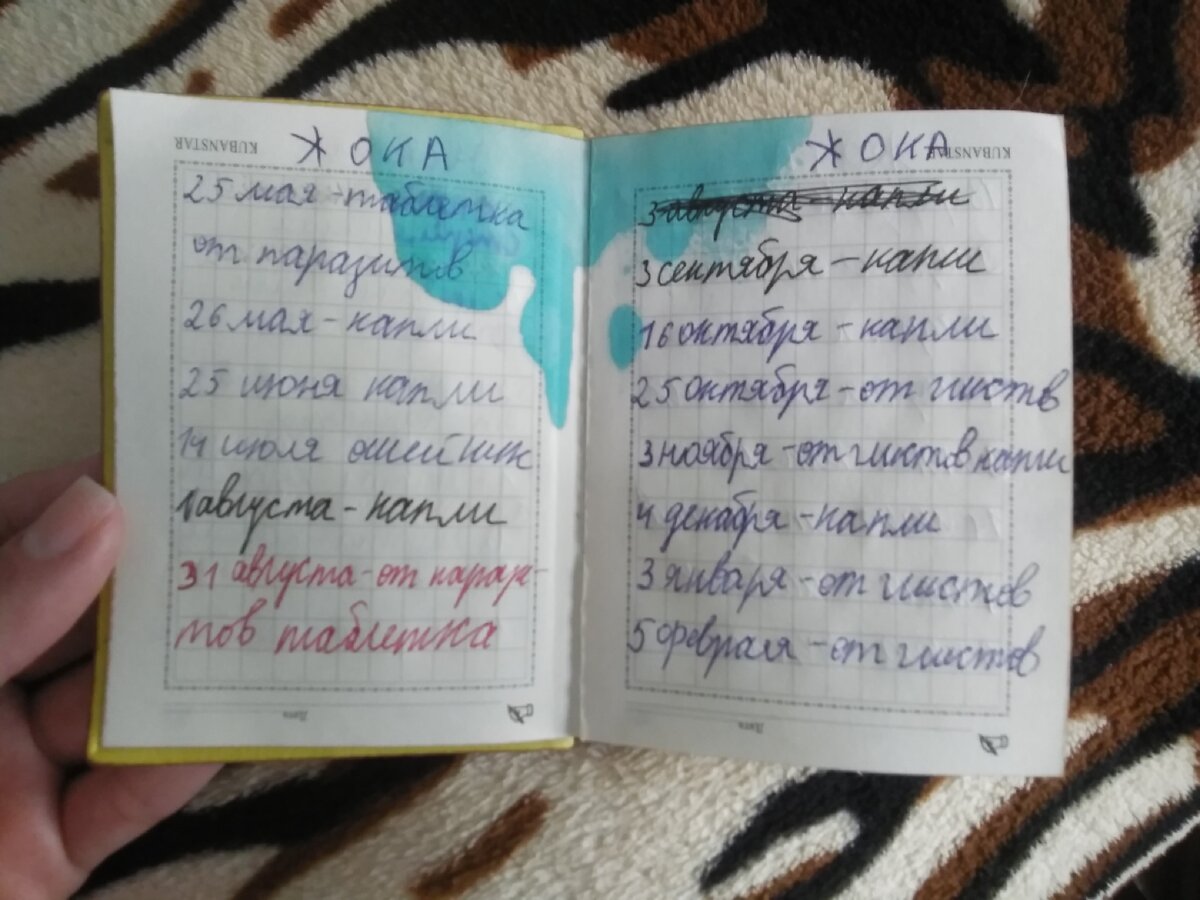 KUBANSTAR
ЖОКА
25 мая - таблетка
от паразитв
26 мая - капли
25 июня капли
14 июля ошейник
1 августа - капли
31 августа - от парази-
тов таблетка
Дата
KUBANSTAR
ЖОКА
3 августа - капли
3 сентября - капли
16 октября - капли
25 октября - от глиств
3 ноября - от глиств капли
4 декабря - капли
3 января - от глистов
5 февраля - от глистов
Дата